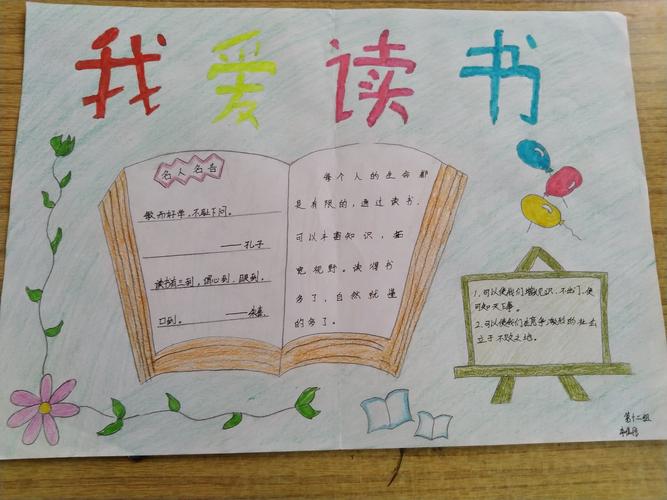 我爱读书
名人名言
敏而好学，不耻下问。
——孔子
读书有三到，谓心到，眼到，
口到。——朱熹
每个人的生命都
是有限的，通过读书，
可以丰富知识，拓
宽视野。读得书
多了，自然就懂
的多了。
1.可以使我们增长见识，不出门，便
可知天下事。
2.可以使我们在竞争激烈的社会
立于不败之地。
第十二组